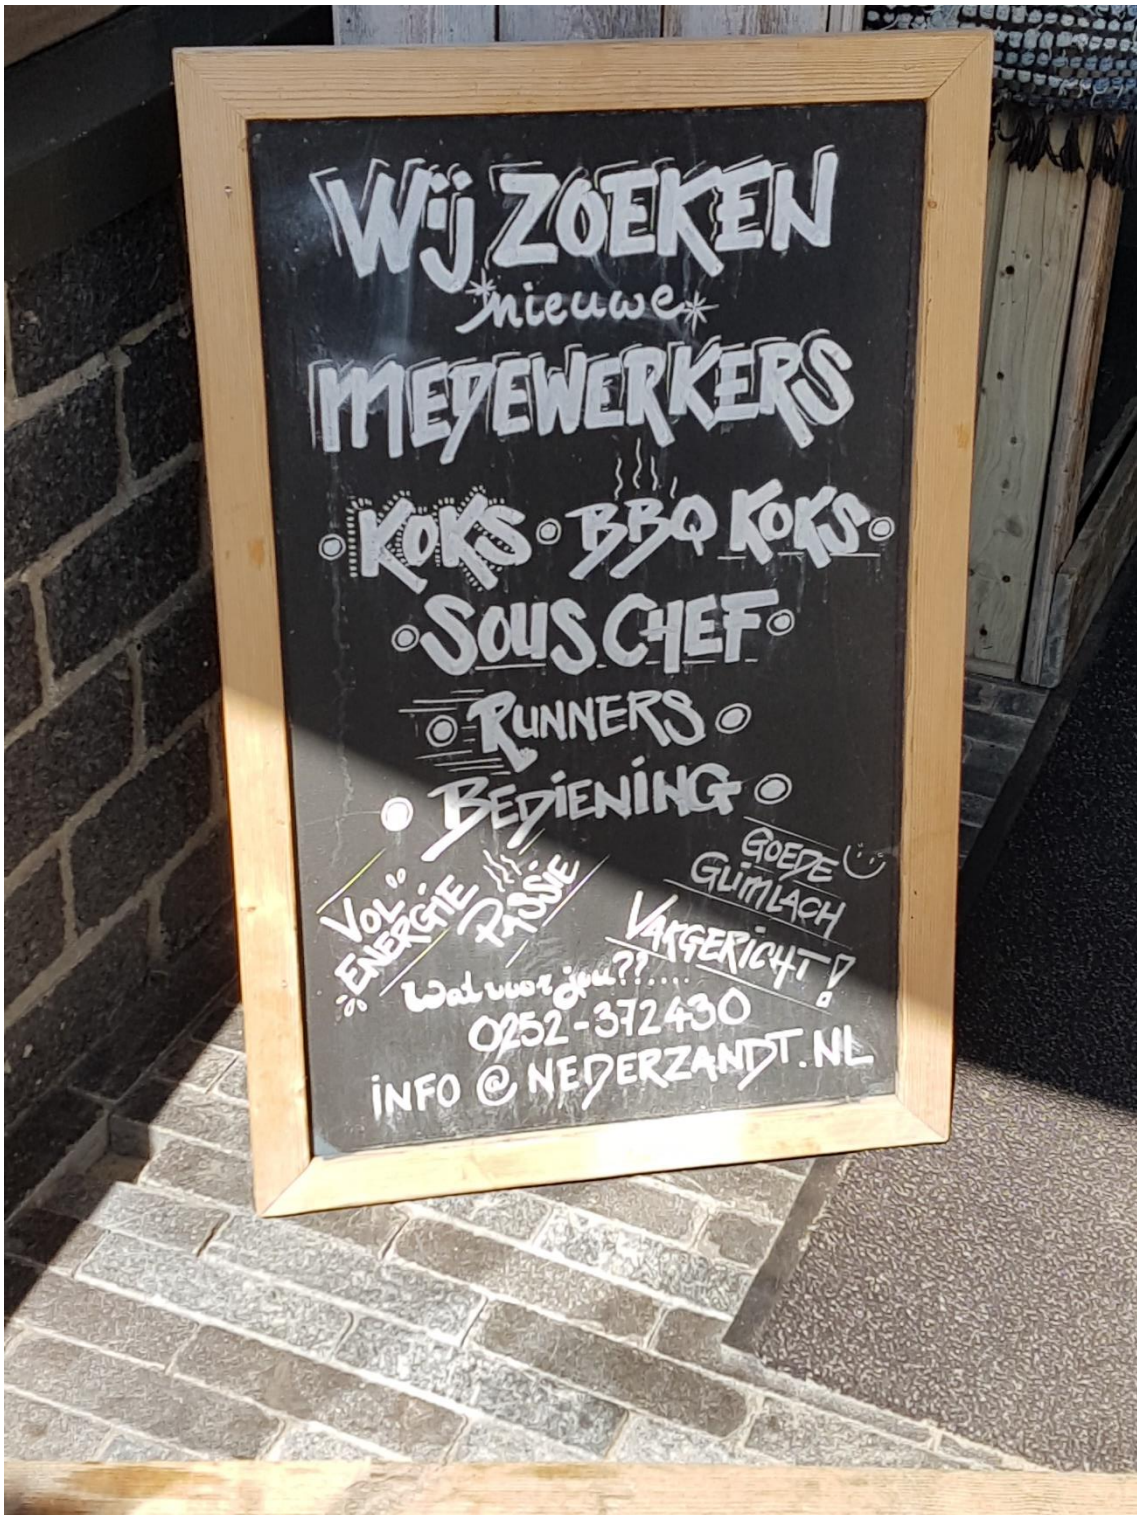 Wij ZOEKEN
*nieuwe*
MEDEWERKERS
KOKS • BBQ KOKS
SOUS CHEF
RUNNERS
BEDIENING
VOL
ENERGIE
PASSIE
GOEDE
GLIMLACH
VAKGERICHT!
Wat voor jou??.....
0252-372430
INFO @ NEDERZANDT.NL